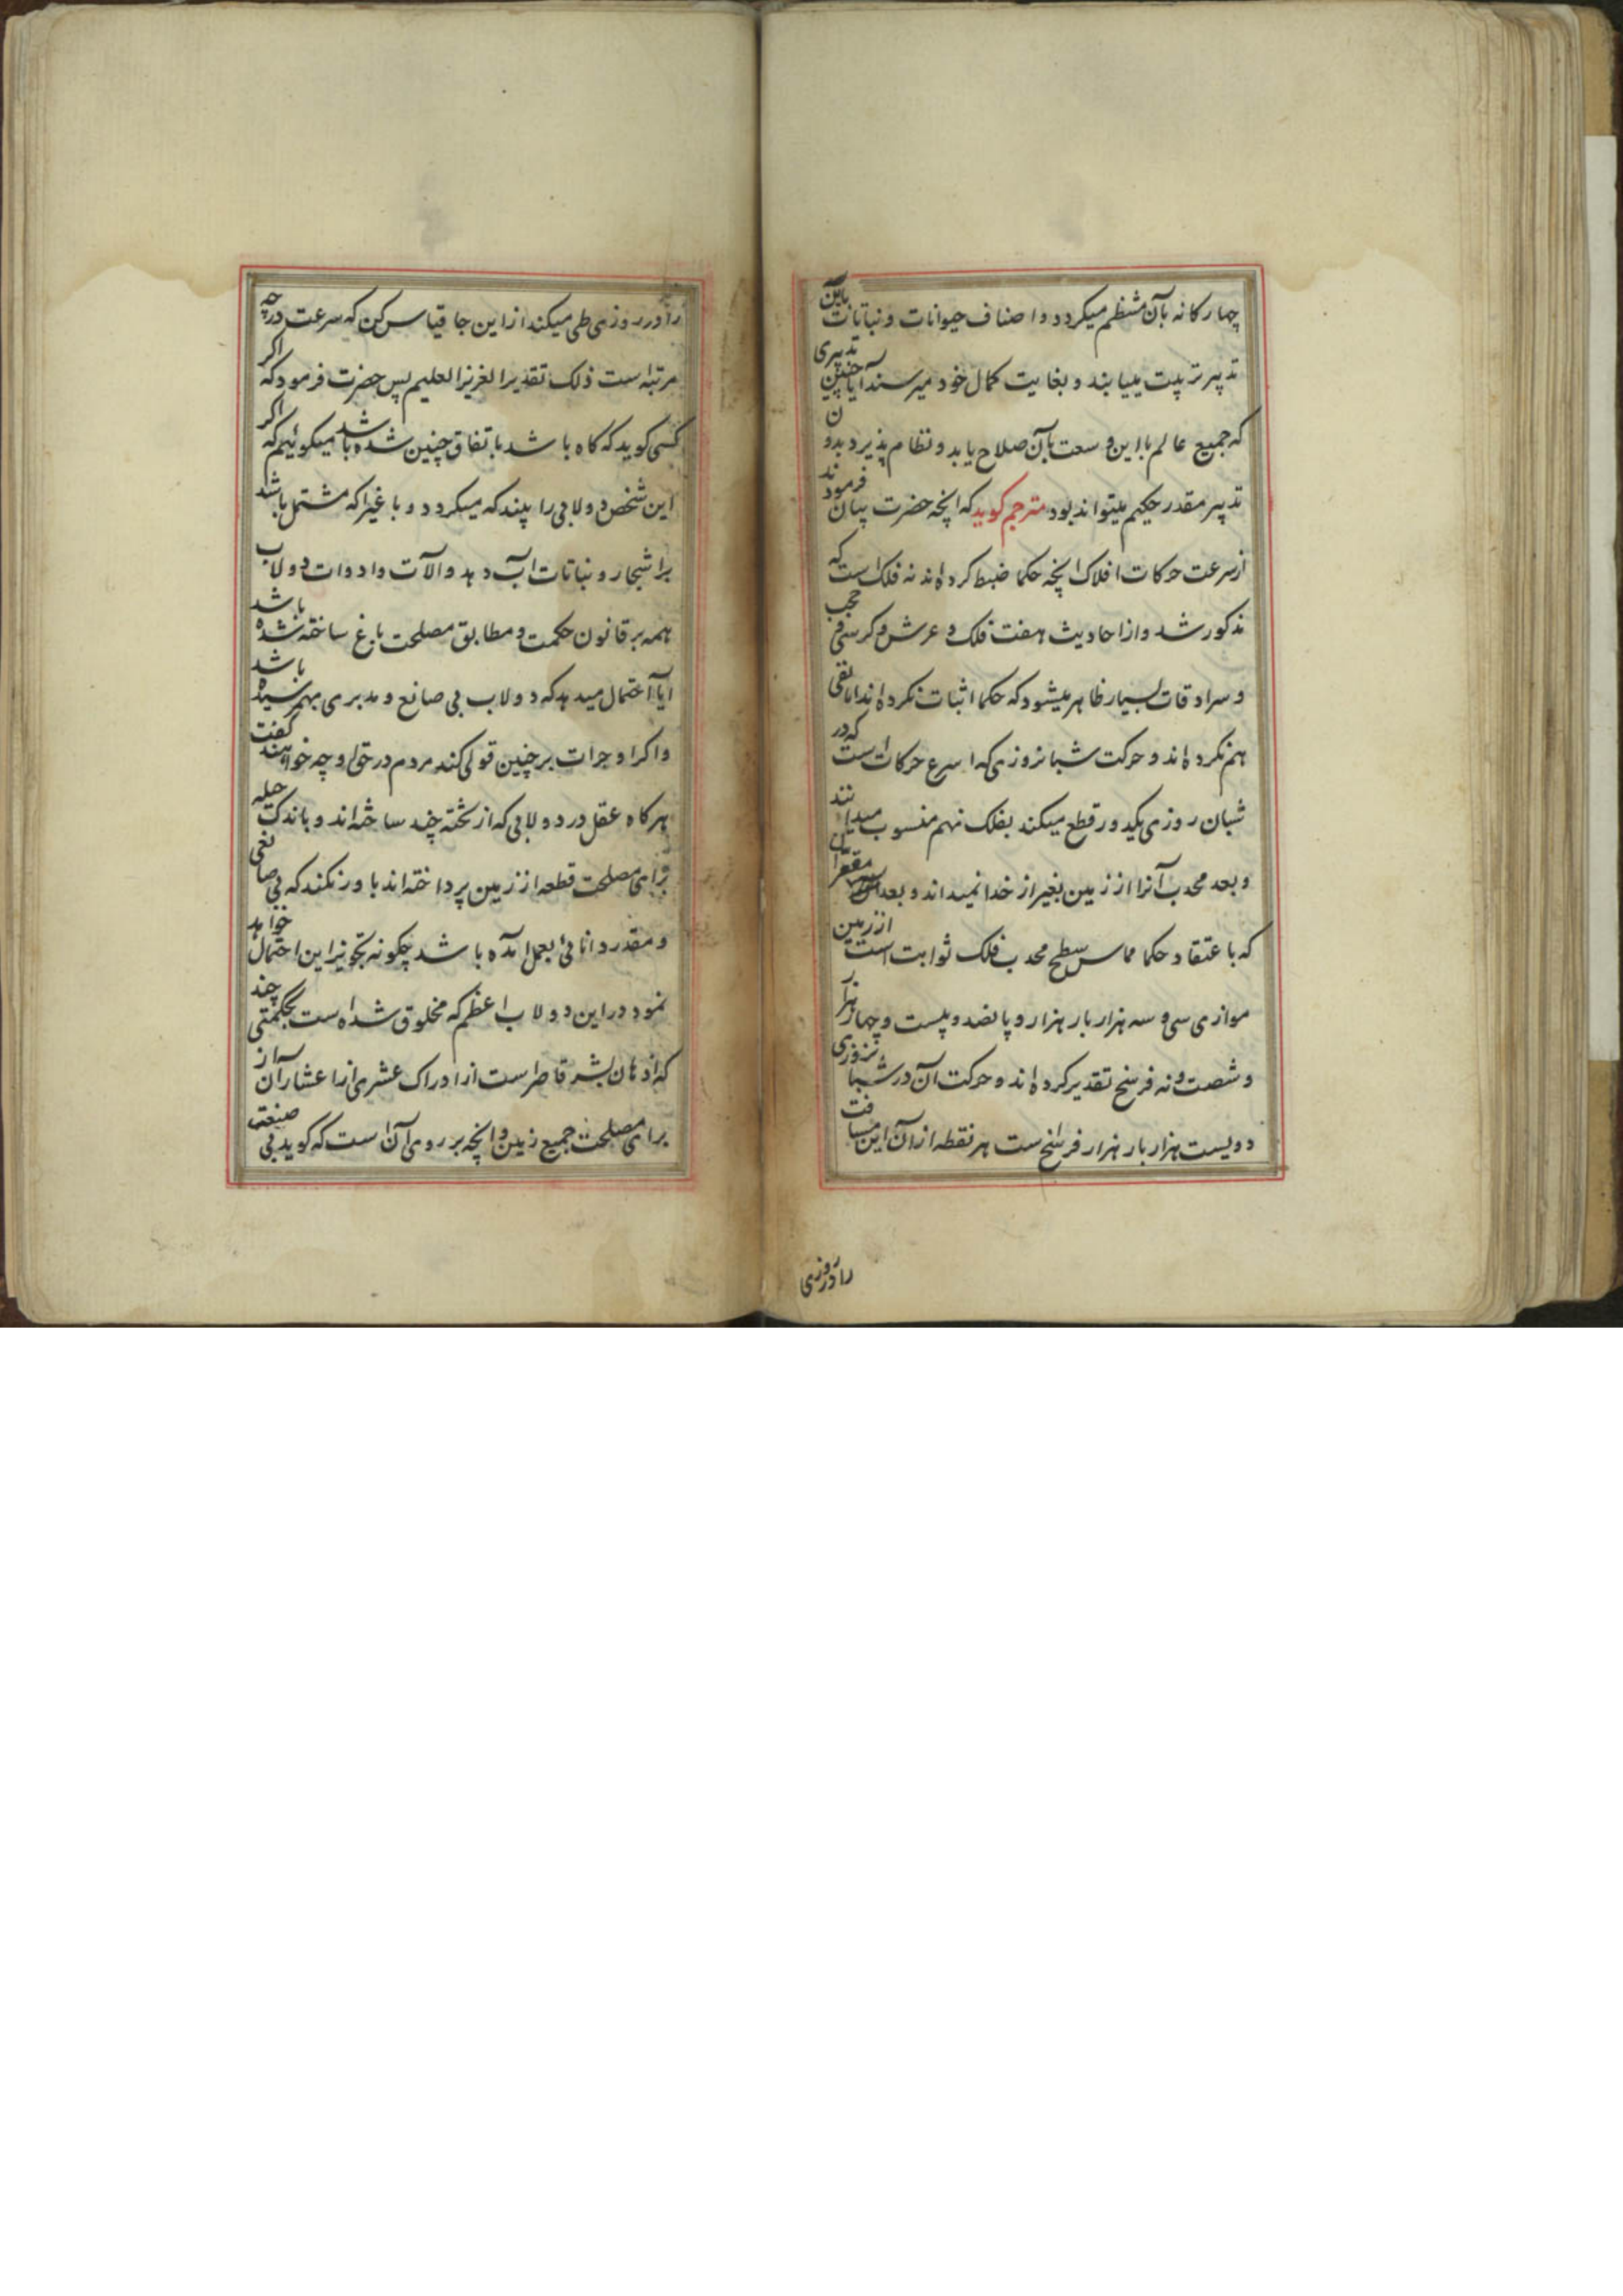 چهارکانه بآن منتظم میکردد و اصناف حیوانات و نباتات باین
تدبیر تربیت مییابند و بغایت کمال خود میرسند آیا چنین تدبیری
که جمیع عالم با این وسعت بآن صلاح یابد و نظام پذیرد بدون
تدبیر مقدر حکیم میتواند بود مترجم کوید که انچه حضرت بیان فرمودند
از سرعت حرکات افلاک انچه حکما ضبط کرده اند نه فلک است که
مذکور شد و از احادیث هفت فلک و عرش و کرسی و حجب
و سرادقات بسیار ظاهر میشود که حکما اثبات نکرده اند اما نفی
هم نکرده اند و حرکت شبانروزی که اسرع حرکات است که در
شبان روزی یکدور قطع میکند بفلک نهم منسوب میدانند
و بعد محدب آنرا از زمین بغیر از خدا نمیداند و بعد مقعرآن
که باعتقاد حکما مماس سطح محدب فلک ثوابت است از زمین
موازی سی و سه هزار بار هزار و پانصد و بیست و چهار هزار
و شصت و نه فرسخ تقدیر کرده اند و حرکت آن در شبانروزی
دویست هزار بار هزار فرسخ است هر نقطه از آن این مسافت
را در روزی
را در روزی طی میکند از این جا قیاس کن که سرعت در چه
مرتبه است ذلک تقدیر العزیز العلیم پس حضرت فرمود که اکر
کسی کوید که کاه باشد باتفاق چنین شده باشد میکوئیم که اکر
این شخص دولابی را بیند که میکردد و باغیرا که مشتمل باشد
بر اشجار و نباتات آب دهد و آلات و ادوات دولاب
همه بر قانون حکمت و مطابق مصلحت باغ ساخته شده باشد
ایا احتمال میدهد که دولاب بی صانع و مدبری بهم رسیده باشد
و اکر او جرات بر چنین قولی کند مردم در حق او چه خواهند کفت
هرکاه عقل در دولابی که از تخته چند ساخته اند و باندک حیله
برای مصلحت قطعه از زمین پرداخته اند باور نکند که بی صانعی
و مقدر دانائی بعمل آمده باشد چکونه تجویز این احتمال خواهد
نمود در این دولاب اعظم که مخلوق شده است بحکمتی چند
که اذهان بشر قاصر است از ادراک عشری از اعشار آن از
برای مصلحت جمیع زمین و انچه بر روی آن است که کوید بی صنعت